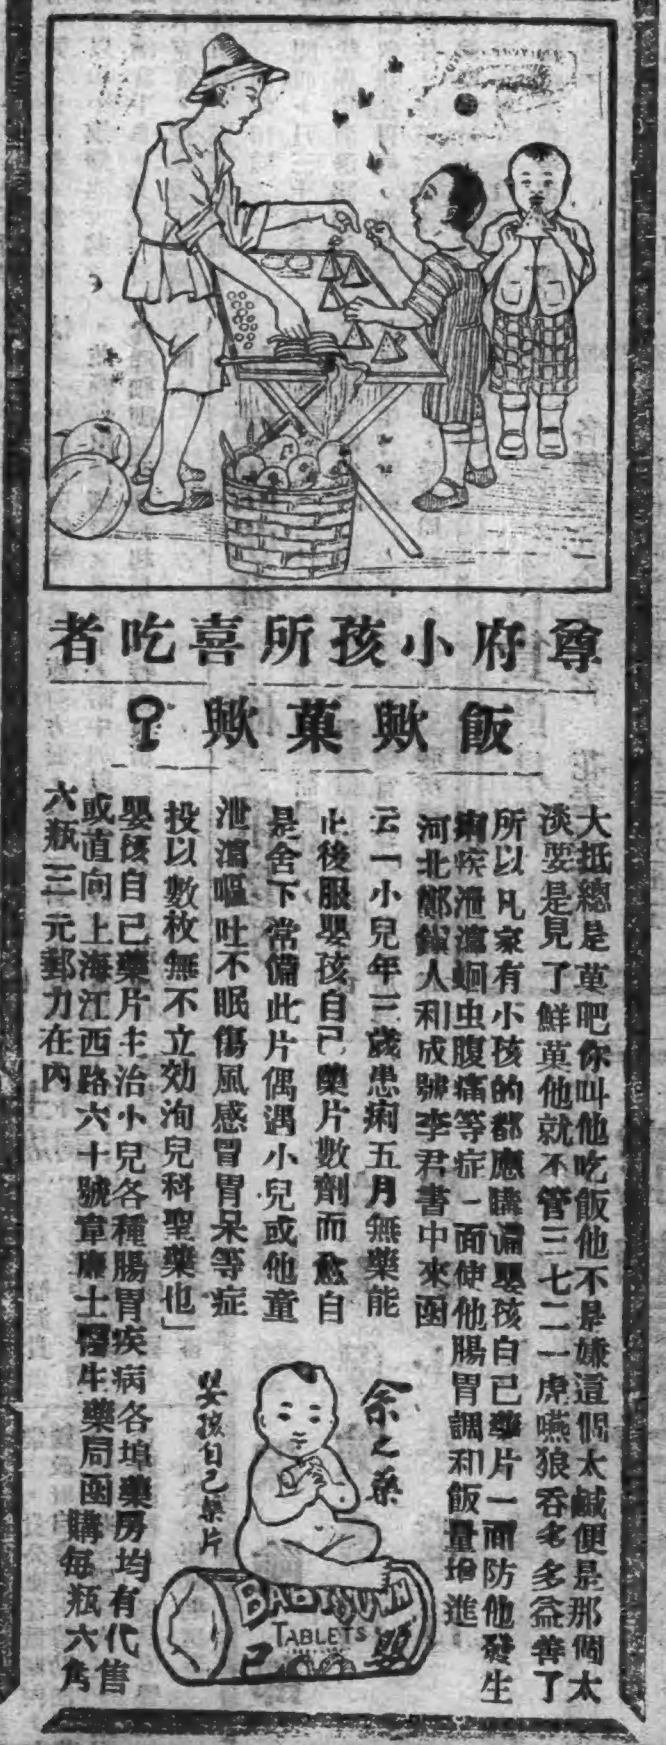 尊府小孩所喜吃者
飯歟菓歟
大抵總是菓吧你叫他吃飯他不是嫌這個太鹹便是那個太
淡要是見了鮮菓他就不管三七二一虎嚥狼吞多多益善了
所以凡家有小孩的都應購備嬰孩自己藥片一面防他發生
痢疾泄瀉蛔虫腹痛等症一面使他腸胃調和飯量增進
河北鄭鎮人利成號李君書中來函
云「小兒年三歲患痢五月無藥能
止後服嬰孩自己藥片數劑而愈自
是舍下常備此片偶遇小兒或他童
泄瀉嘔吐不眠傷風感冒胃呆等症
投以數枚無不立効洵兒科聖藥也」
嬰孩自己藥片主治小兒各種腸胃疾病各埠藥房均有代售
或直向上海江西路六十號韋廉士醫生藥局函購每瓶六角
六瓶三元郵力在內
余之藥
嬰孩自己藥片
BABY'S OWN
TABLETS
嬰 己